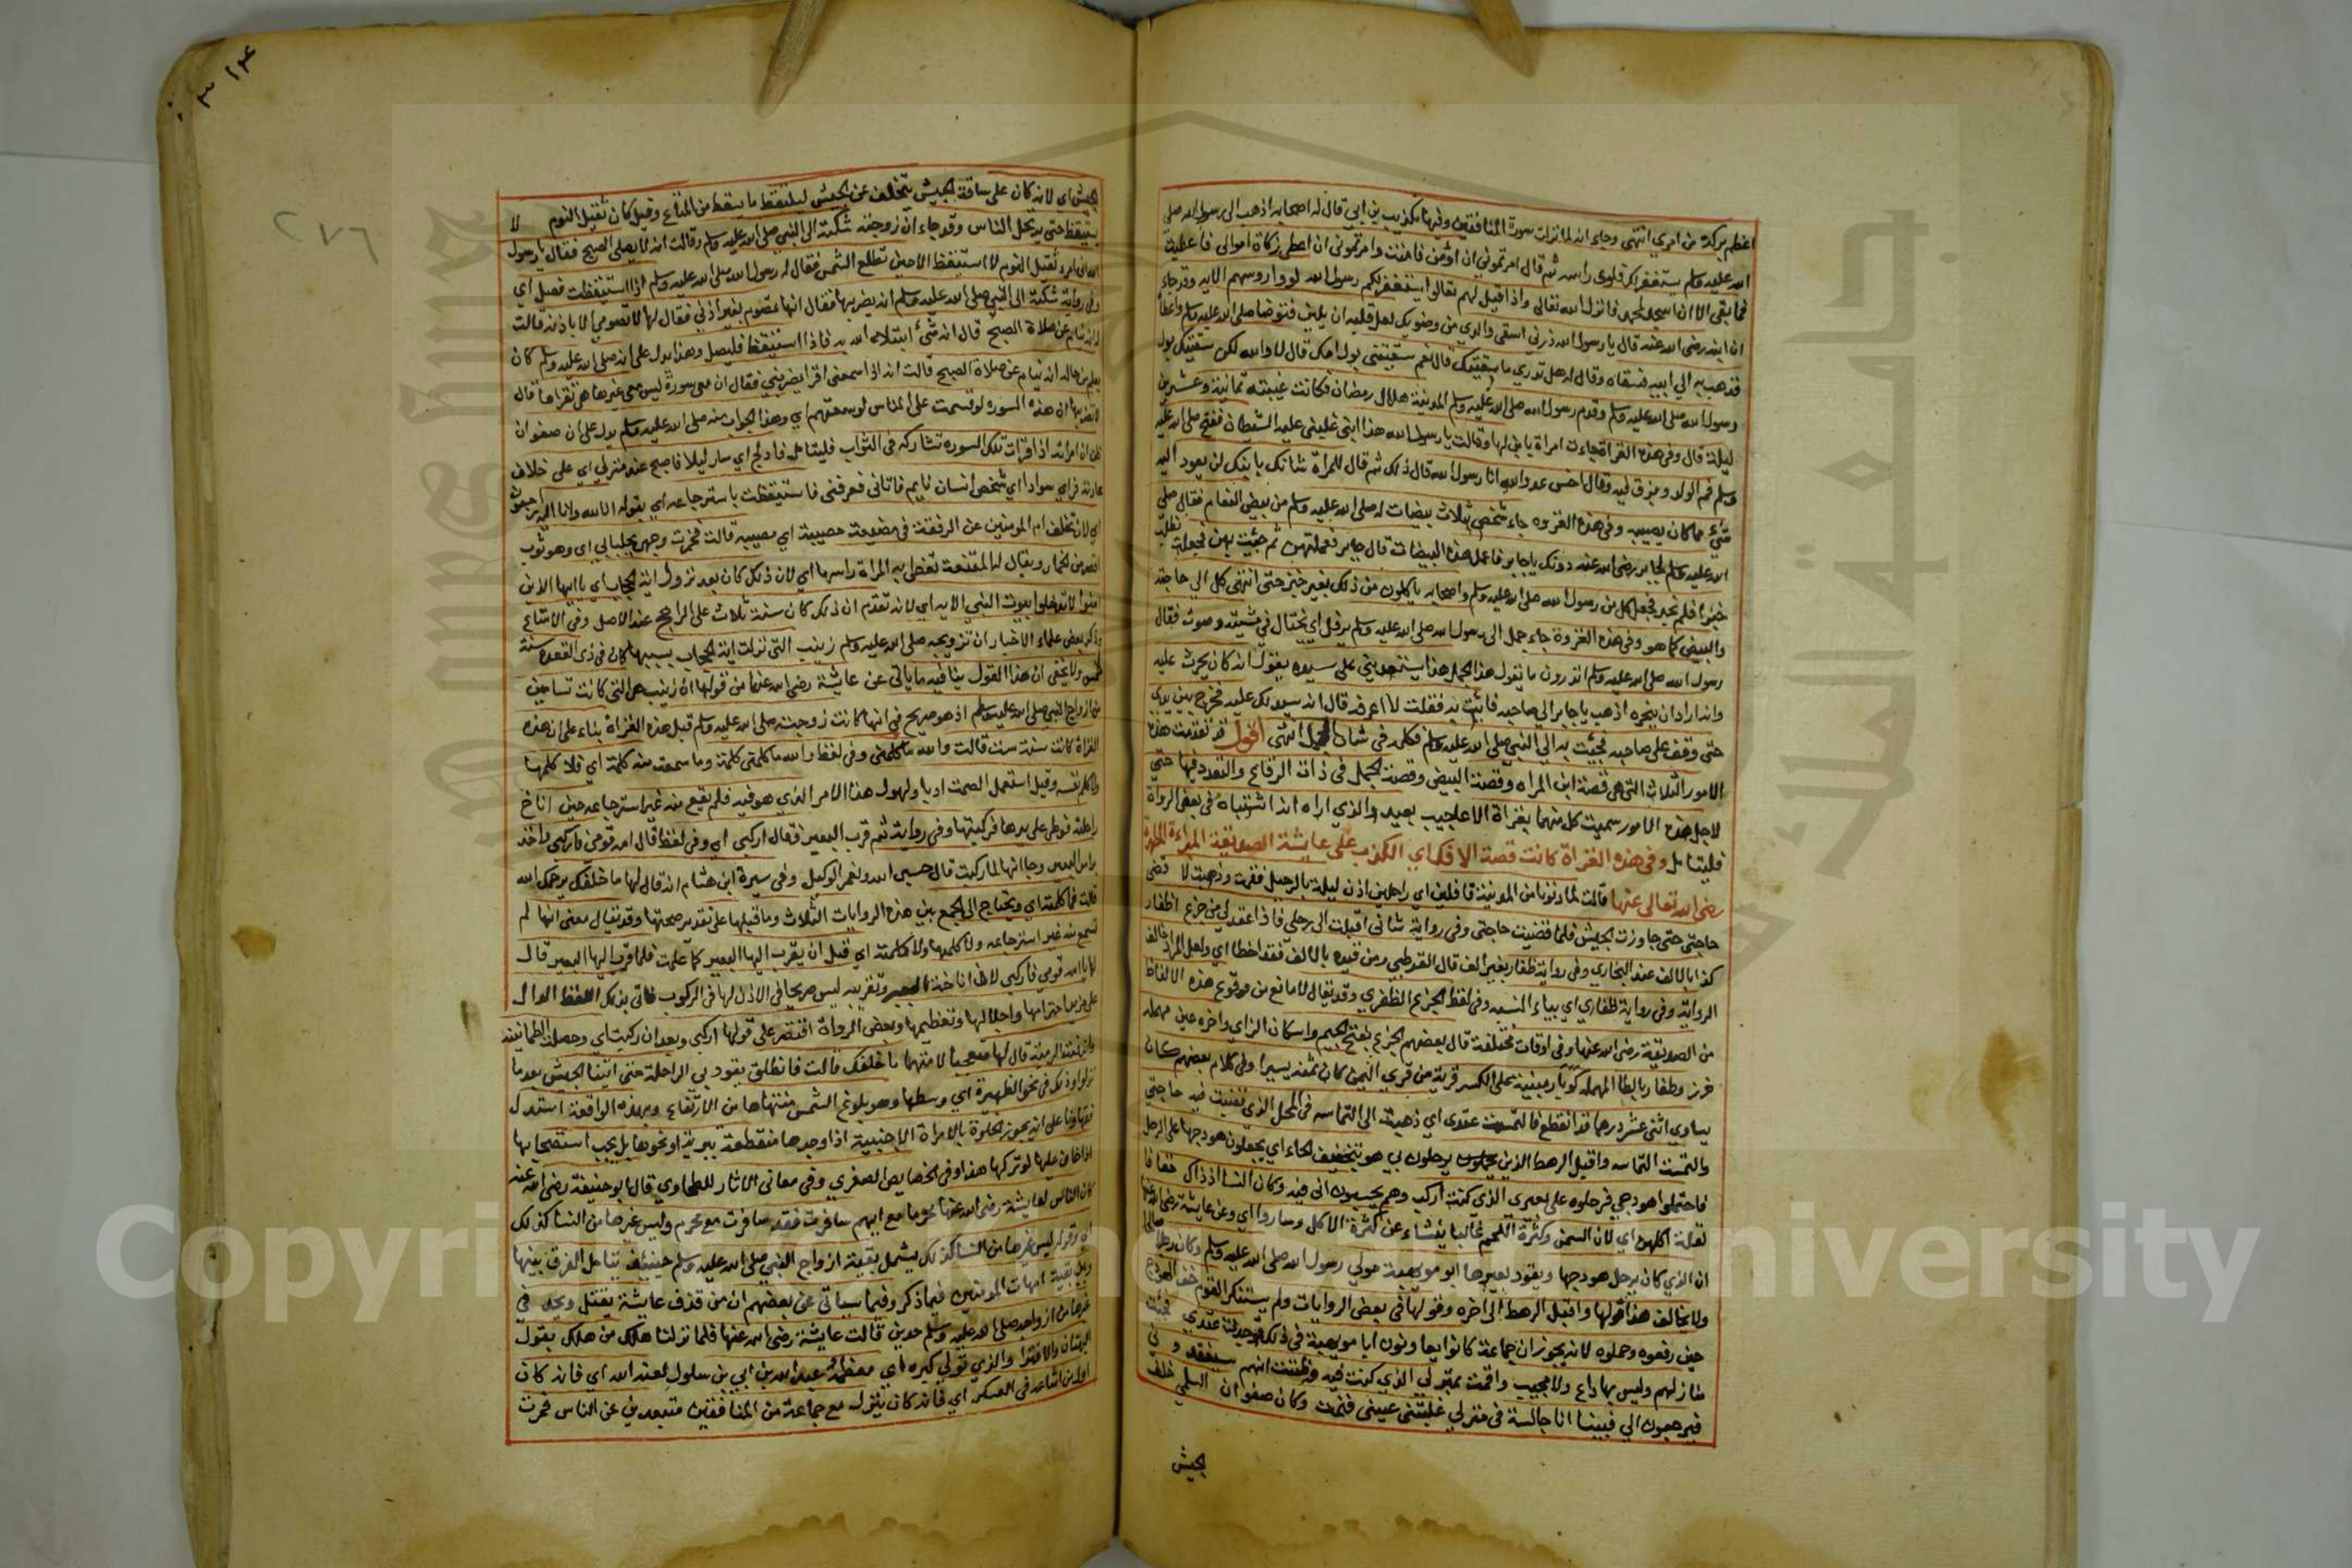 اعظم بركة من امري انتهى وجاء انه لما نزلت سورة المنافقين وفيها تكذيب بن ابي قال له اصحابه اذهب الى رسول الله صلى
الله عليه وسلم يستغفر لك فلوى راسه ثم قال امرتموني ان اؤمن فامنت وامرتموني ان اعطي زكاة اموالي فاعطيت
فما بقي الا ان اسجد لمحمد فانزل الله تعالى واذا قيل لهم تعالوا يستغفر لكم رسول الله لووا روسهم الايه وقد جاء
ان ابنه رضى الله عنه قال يا رسول الله ذرني اسقي والدي من وضوئك لعل قلبه ان يلين فتوضا صلى الله عليه وسلم واعطاه
فذهب به الى ابيه فسقاه وقال له هل تدري ما سقيتك قال نعم سقيتني بول امك قال لا والله لكن سقيتك بول
رسول الله صلى الله عليه وسلم وقدم رسول الله صلى الله عليه وسلم المدينة هلال رمضان فكانت غيبته ثمانية وعشرين
ليلة قال وفى هذه الغزاة جاءت امراة بابن لها وقالت يا رسول الله هذا ابني غلبني عليه الشيطان ففتح صلى الله عليه
وسلم فم الولد وبزق فيه وقال اخس عدو الله انا رسول الله قال ذلك ثم قال للمراة شانك بابنك لن يعود اليه
شئ مما كان يصيبه وفى هذه الغزوه جاء شخص بثلاث بيضات له صلى الله عليه وسلم من بيض النعام فقال صلى
الله عليه وسلم لجابر رضى الله عنه دونك يا جابر فاعمل هذه البيضات قال جابر فعملتهن ثم جئت بهن فجعلت نطلب
خبزا فلم نجد فجعل كل من رسول الله صلى الله عليه وسلم واصحابه ياكلون من ذلك بغير خبز حتى انتهى كل الى حاجته
والبيض كما هو وفى هذه الغزوة جاء جمل الى رسول الله صلى الله عليه وسلم يرفل اي يختال في مشيته وصوت فقال
رسول الله صلى الله عليه وسلم اتدرون ما يقول هذا الجمل هذا يستعديني على سيده يقول انه كان يحرث عليه
وانه اراد ان ينحره اذهب يا جابر الى صاحبه فائت به فقلت لا اعرفه قال انه سيدلك عليه فخرج بين يدي
حتى وقف على صاحبه فجئت به الى النبي صلى الله عليه وسلم فكلمه فى شان الجمل انتهى اقول قد تقدمت هذه
الامور الثلاث التى هي قصة ابن المراه وقصة البيض وقصة الجمل فى ذات الرقاع والتعدد فيها حتى
لاجل هذه الامور سميت كل منهما بغزاة الاعاجيب بعيد والذي اراه انه اشتباه فى بعض الرواة
فليتامل وفى هذه الغزاة كانت قصة الافك اي الكذب على عايشة الصديقة المبراءة المطهرة
رضى الله تعالى عنها قالت لما دنونا من المدينة قافلين اي راجعين اذن ليلة بالرحيل فقمت وذهبت لا قضى
حاجتى حتى جاوزت الجيش فلما قضيت حاجتى وفى رواية شانى اقبلت الى رحلى فاذا عقد لى من جزع اظفار
كذا بالالف عند البخاري وفى رواية ظفار بغير الف قال القرطبي ومن قيده بالالف فقد اخطا اي ولعل المراد خالف
الرواية وفى رواية ظفاري اي بياء النسبه وفى لفظ الجزع الظفري وقد يقال لا مانع من وقوع هذه الالفاظ
من الصديقة رضى الله عنها وفى اوقات مختلفة قال بعضهم الجزع بفتح الجيم واسكان الزاي واخره عين مهمله
خرز وظفار بالظا المهمله كوبار مبنية على الكسر قرية من قري اليمن كان ثمنه يسيرا وفى كلام بعضهم كان
يساوي اثنى عشر درهما قد انقطع فالتمست عقدى اي ذهبت الى التماسه فى المحل الذي قضيت فيه حاجتي
والتمست التماسه واقبل الرهط الذين يرحلون بي هو بتخفيف الحاء اي يجعلون هودجها على الرحل
فاحتملوا هودجي فرحلوه على بعيري الذي كنت اركب وهم يحسبون انى فيه وكان النسا اذ ذاك خفافا
لقلة اكلهن اي لان السمن وكثرة اللحم غالبا ينشاء عن كثرة الاكل وساروا اي وعن عايشة رضى الله عنها
ان الذي كان يرحل هودجها ويقود بعيرها ابو مويهبة مولي رسول الله صلى الله عليه وسلم وكان رجلا صالحا
ولا يخالف هذا قولها واقبل الرهط الى اخره وقولها فى بعض الروايات ولم يستنكر القوم خفة الهودج
حين رفعوه وحملوه لانه يجوز ان جماعة كانوا يعاونون ابا مويهبة فى ذلك فوجدت عقدي فجئت
منازلهم وليس بها داع ولا مجيب واقمت بمنزلى الذي كنت فيه وظننت انهم سيفقدوني
فيرجعون الى فبينا انا جالسة فى منزلي غلبتنى عيني فنمت وكان صفوان السلمي خلف
الجيش
٢٧٦
الجيش اي لانه كان على ساقة الجيش يتخلف عن الجيش ليلتقط ما يسقط من المتاع وقيل كان ثقيل النوم لا
يستيقظ حتى يرتحل الناس وقد جاء ان زوجته شكته الى النبي صلى الله عليه وسلم وقالت انه لا يصلى الصبح فقال يا رسول
الله انى امرء ثقيل النوم لا استيقظ الا حين تطلع الشمس فقال له رسول الله صلى الله عليه وسلم اذا استيقظت فصل اي
وفى رواية شكته الى النبي صلى الله عليه وسلم انه يضربها فقال انها تصوم بغير اذنى فقال لها لا تصومي الا باذنه قالت
انه ينام عن صلاة الصبح قال انه شئ ابتلاه الله به فاذا استيقظ فليصل وهذا يدل على انه صلى الله عليه وسلم كان
يعلم من حاله انه ينام عن صلاة الصبح قالت انه اذا سمعنى اقرا يضربني فقال ان معى سورة ليس معى غيرها هى تقراها قال
لا تضربها ان هذه السوره لو قسمت على الناس لوسعتهم اي وهذا الجواب منه صلى الله عليه وسلم يدل على ان صفوان
ظن ان امراته اذا قرات تلك السوره تشاركه فى الثواب فليتامل فادلج اي سار ليلا فاصبح عند منزلى اي على خلاف
عادته فراي سوادا اي شخص انسان نايم فاتانى فعرفنى فاستيقظت باسترجاعه اي بقوله انا لله وانا اليه راجعون
اي لان تخلف ام المومنين عن الرفقة فى مضيعة مصيبة اي مصيبه قالت فخمرت وجهي بجلبابي اي وهو ثوب
اقصر من الخمار ويقال له المقنعة تغطى به المراة راسها اي لان ذلك كان بعد نزول اية الحجاب اي يا ايها الذين
امنوا لا تدخلوا بيوت النبي الايه اي لانه تقدم ان ذلك كان سنة ثلاث على الراجح عند الاصل وفى الامتاع
وذكر بعض علماء الاخبار ان تزويجه صلى الله عليه وسلم زينب التى نزلت اية الحجاب بسببها كان فى ذى القعده سنة
خمس ولا يخفى ان هذا القول ينافيه ما ياتى عن عايشة رضى الله عنها من قولها ان زينب هى التى كانت تسامينى
من ازواج النبي صلى الله عليه وسلم اذ هو صريح فى انها كانت زوجته صلى الله عليه وسلم قبل هذه الغزاة بناء على ان هذه
الغزاة كانت سنة ست قالت والله ما كلمنى وفى لفظ والله ما كلمنى كلمة وما سمعت منه كلمة اي فلا كلمها
ولا كلم نفسه وقيل استعمل الصمت ادبا ولهول هذا الامر الذي هو فيه فلم يقع منه غير استرجاعه حين اناخ
راحلته فوطى على يدها فركبتها وفى رواية ثم قرب البعير فقال اركبى اي وفى لفظ قال امه قومى فاركبى واخذ
براس البعير وجا انها لما ركبت قال حسبي الله ونعم الوكيل وفى سيرة ابن هشام انه قال لها ما خلفك يرحمك الله
قالت فما كلمته اي ويحتاج الى الجمع بين هذه الروايات الثلاث وما قبلها على تقدير صحتها وقد يقال معنى انها لم
تسمع منه غير استرجاعه ولا كلمها ولا كلمته اي قبل ان يقرب اليها البعير كما علمت فلما قرب اليها البعير قال
لها يا امه قومي فاركبي لان اناخته البعير وتقريبه ليس صريحا فى الاذن لها فى الركوب فاتى بذلك اللفظ الدال
على مزيد احترامها واجلالها وتعظيمها وبعض الرواة اقتصر على قولها اركبى وبعد ان ركبت اي وحصلت الطمانينة
قال لها متعجبا لا متهما ما خلفك قالت فانطلق يقود بى الراحلة حتى اتينا الجيش بعد ما
نزلوا وذلك فى نحر الظهيرة اي وسطها وهو بلوغ الشمس منتهاها من الارتفاع وبهذه الواقعة استدل
فقهاونا على انه يجوز الخلوة بالامراة الاجنبية اذا وجدها منقطعة ببرية او نحوها بل يجب استصحابها
اذا خاف عليها لو تركها هذا وفى الخصايص الصغري وفى معانى الاثار للطحاوي قال ابو حنيفة رضى الله عنه
كان الناس لعايشة رضى الله عنها محرما مع ايهم سافرت فقد سافرت مع محرم وليس غيرها من النسا كذلك
اه وقوله ليس غيرها من النسا كذلك يشمل بقية ازواج النبي صلى الله عليه وسلم حينئذ يتامل الفرق بينها
وبين بقية امهات المومنين فيما ذكر وفيما سياتى عن بعضهم ان من قذف عايشة يقتل ويحد فى
غيرها من ازواجه صلى الله عليه وسلم حدين قالت عايشة رضى الله عنها فلما نزلنا هلك من هلك بقول
البهتان والافترا والذي تولى كبره اي معظمه عبد الله بن ابي بن سلول لعنه الله اي فانه كان
اول من اشاعه فى العسكر اي فانه كان ينزل مع جماعة من المنافقين متبعدين عن الناس فمرت
Copyright © King Saud University
جامعة الملك سعود